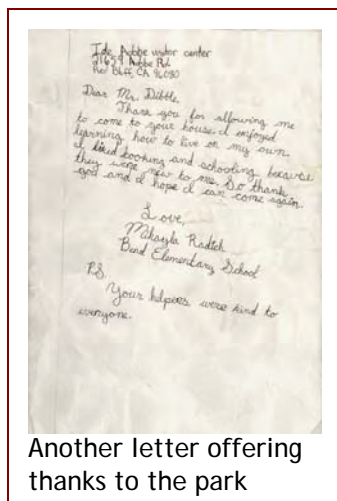 Ide Adobe visitor center
21659 Adobe Rd.
Red Bluff, CA 96080
Dear Mr. Dibble,
Thank you for allowing me
to come to your house. I enjoyed
learning how to live on my own.
I liked cooking and schooling because
they were new to me. So thank
you and I hope I can come again.
Love,
Mikayla
Bend Elementary School
P.S.
Your helpers were kind to
everyone.
Another letter offering
thanks to the park